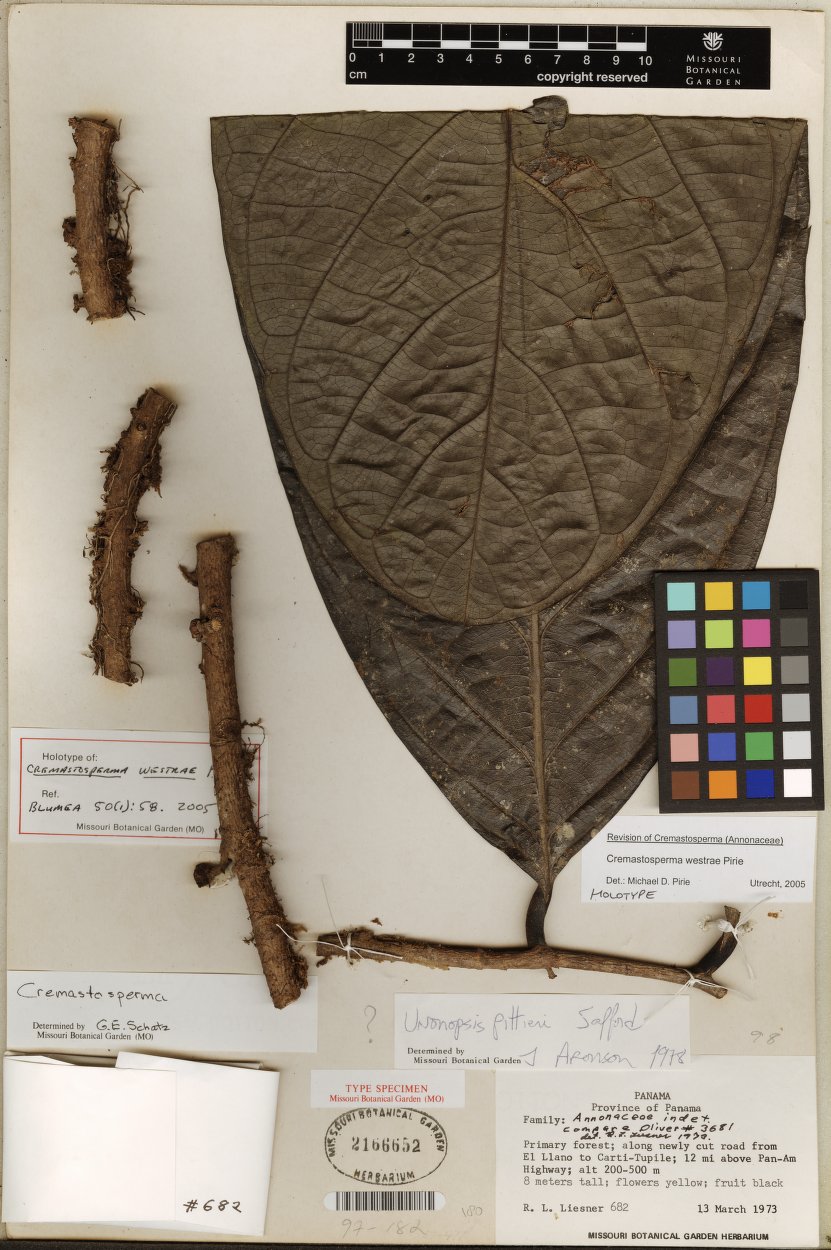 0 1 2 3 4 5 6 7 8 9 10
cm
copyright reserved
MISSOURI
BOTANICAL
GARDEN
Holotype of:
CREMASTOSPERMA WESTRAE
Ref.
BLUMEA 50(1): 58. 2005
Missouri Botanical Garden (MO)
Revision of Cremastosperma (Annonaceae)
Cremastosperma westrae Pirie
Det.: Michael D. Pirie Utrecht, 2005
HOLOTYPE
Cremastosperma
Determined by G.E. Schatz
Missouri Botanical Garden (MO)
? Unonopsis pittieri Safford
Determined by
Missouri Botanical Garden J Aronson 1978
98
TYPE SPECIMEN
Missouri Botanical Garden (MO)
MISSOURI BOTANICAL GARDEN
2166652
HERBARIUM
97-182
180
#682
PANAMA
Province of Panama
Family: Annonaceae indet.
compare Oliver # 3681
det. R.L. Liesner 1978.
Primary forest; along newly cut road from
El Llano to Carti-Tupile; 12 mi above Pan-Am
Highway; alt 200-500 m
8 meters tall; flowers yellow; fruit black
R. L. Liesner 682 13 March 1973
MISSOURI BOTANICAL GARDEN HERBARIUM